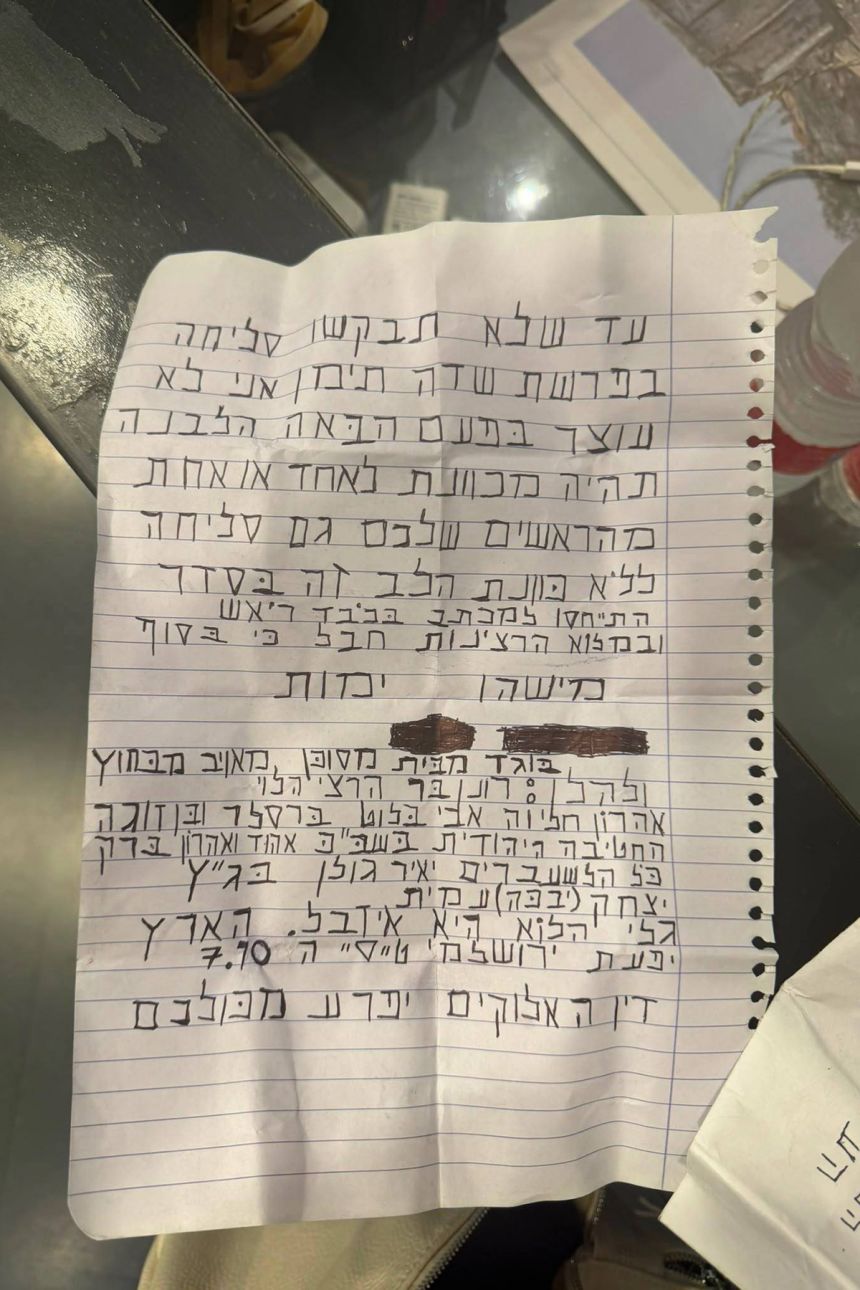 עד שלא תבקשו סליחה
בפרשת שדה תימן אני לא
עוצר בפעם הבאה הלבנה
תהיה מכוונת לאחד או אחת
מהראשים שלכם גם סליחה
ללא כוונת הלב זה בסדר
התייחסו למכתב בכובד ראש
ובמלוא הרצינות חבל כי בסוף
מישהו ימות
בוגד מבית מסוכן מאויב מבחוץ
ולהלן: רונן בר הרצי הלוי
אהרון חליוה אבי בלוט ברסלר ובן זוגה
החטיבה היהודית בשב"כ אהוד ואהרון ברק
כל הלשעברים יאיר גולן בג"ץ
יצחק (יבבה) עמית
גלי הלוא היא איזבל. הארץ
יפעת ירושלמי ט"ס" ה 7.10
דין האלוקים יפרע מכולכם